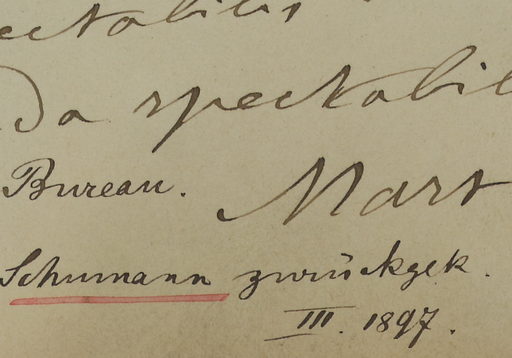 ectabilis
da spectabil
Bureau. Mart
Schumann zurückgek.
III. 1897.